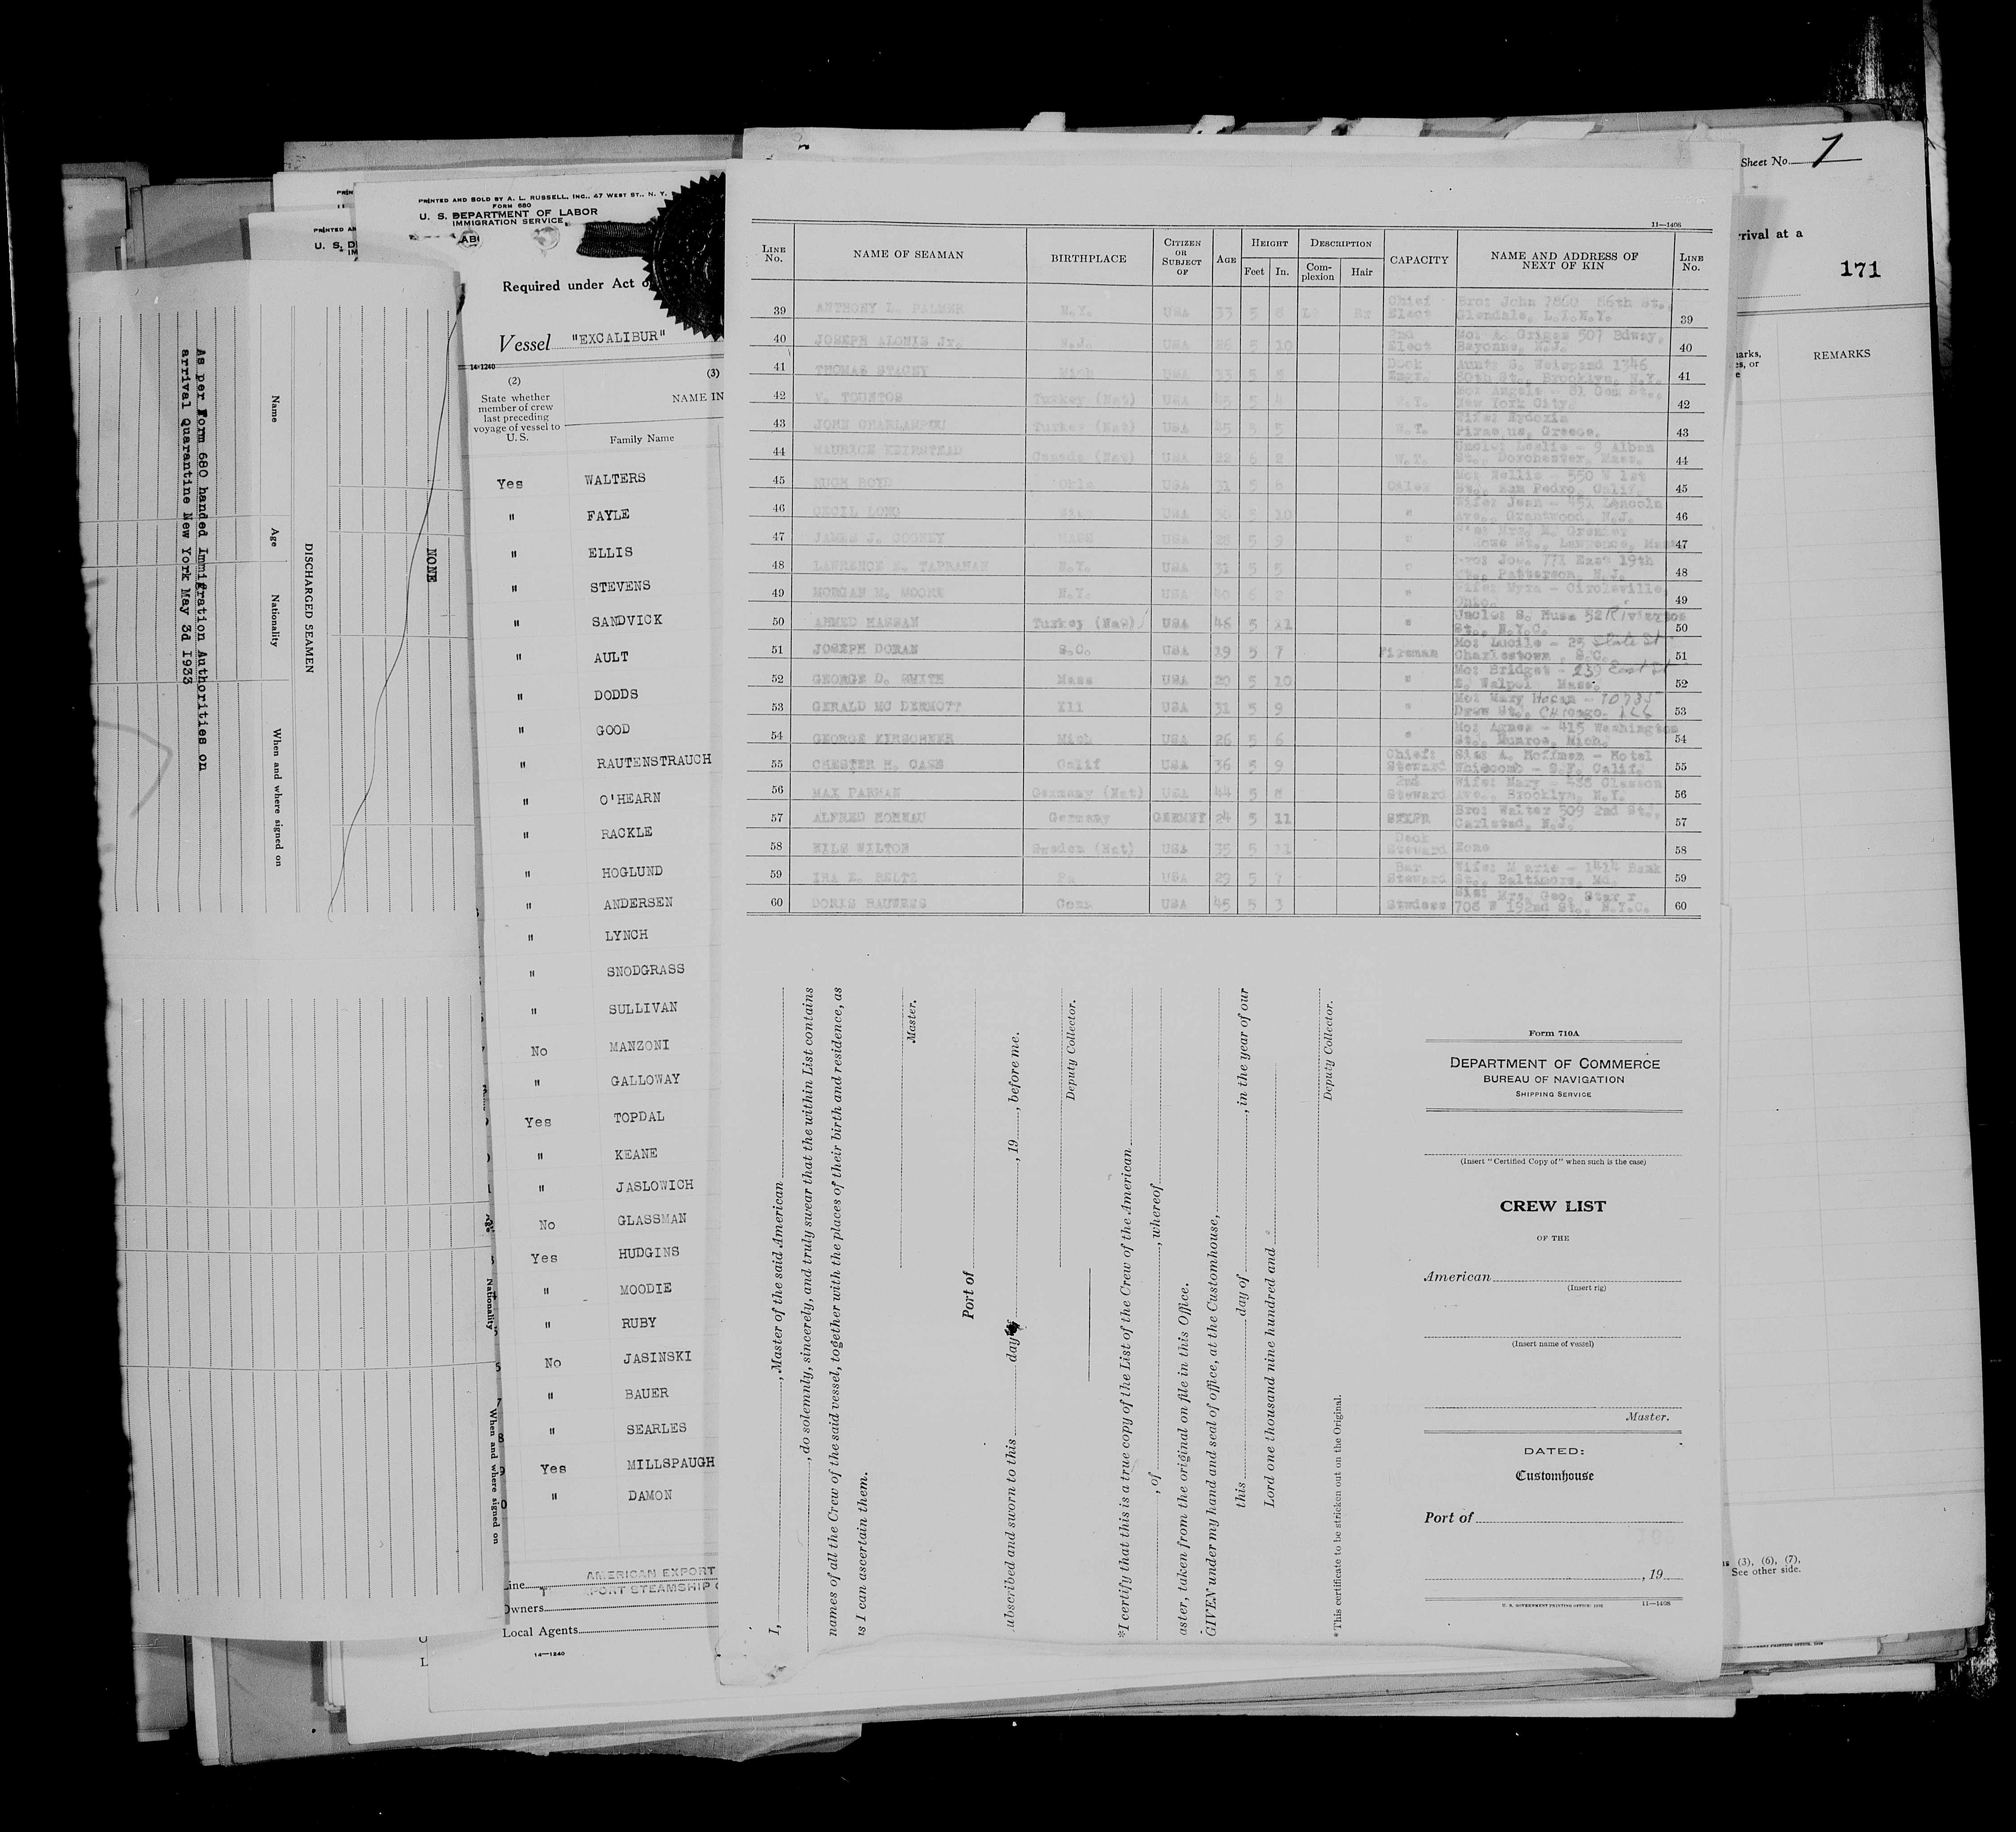 As per Form 680 handed Immigration Authorities on
arrival Quarantine New York May 3d 1933
Name
Age
Nationality
When and where signed on
DISCHARGED SEAMEN
NONE
Age
Nationality
When and where signed on
PRINTED AND SOLD BY A. L. RUSSELL, INC., 47 WEST ST., N. Y.
FORM 680
U. S. DEPARTMENT OF LABOR
IMMIGRATION SERVICE
Required under Act o
Vessel "EXCALIBUR"
14-1240
(2)
(3)
State whether
member of crew
last preceding
voyage of vessel to
U. S.
NAME IN
Family Name
Yes WALTERS
" FAYLE
" ELLIS
" STEVENS
" SANDVICK
" AULT
" DODDS
" GOOD
" RAUTENSTRAUCH
" O'HEARN
" RACKLE
" HOGLUND
" ANDERSEN
" LYNCH
" SNODGRASS
" SULLIVAN
No MANZONI
" GALLOWAY
Yes TOPDAL
" KEANE
" JASLOWICH
No GLASSMAN
Yes HUDGINS
" MOODIE
" RUBY
No JASINSKI
" BAUER
" SEARLES
Yes MILLSPAUGH
" DAMON
Line AMERICAN EXPORT
PORT STEAMSHIP
Owners
Local Agents
14—1240
11—1408
LINE No. NAME OF SEAMAN BIRTHPLACE CITIZEN OR SUBJECT OF AGE HEIGHT Feet In. DESCRIPTION Complexion Hair CAPACITY NAME AND ADDRESS OF NEXT OF KIN LINE No.
39 ANTHONY L. PALMER N.Y. USA 33 5 8 Chief Elect Bro: John 7860 86th St., Glendale, L.I.N.Y. 39
40 JOSEPH ALONIS Jr. N.J. USA 26 5 10 2nd Elect Mo: A. 507 Bdway, Bayonne, N.J. 40
41 THOMAS STACEY Mich USA 33 5 Deck Engr. Aunt: S. 1346 80th St., Brooklyn, N.Y. 41
42 V. TOUNTOS Turkey (Nat) USA 45 5 4 W.T. 81 St., New York City. 42
43 JOHN CHARLAMPOU Turkey (Nat) USA 45 5 5 W.T. Wife: Eydoxia Piraeus, Greece. 43
44 MAURICE KEIRSTEAD Canada (Nat) USA 22 6 2 W.T. Uncle: Leslie - 9 Alban St., Dorchester, Mass. 44
45 HUGH BOYD Okla USA 31 5 8 Oiler Mo: Nellie - 550 W 1st St., San Pedro, Calif. 45
46 CECIL LONG USA 5 10 " Wife: Jean - 451 Lincoln Ave., Grantwood, N.J. 46
47 JAMES J. COONEY MASS USA 28 5 9 " St., Lawrence, Mass 47
48 LAWRENCE E. N.Y. USA 31 5 5 " Bro: Jos. 771 East 19th St., Patterson, N.J. 48
49 MORGAN M. MOORE N.Y. USA 40 6 2 " Wife: Myra - Circleville, Ohio. 49
50 AHMED HASSAN Turkey (Nat) USA 46 5 11 " Uncle: S. Husa 52 Rivington St., N.Y.C. 50
51 JOSEPH DORAN S.C. USA 19 5 7 Fireman Mo: Lucile - 25 State St Charlestown, S.C. 51
52 GEORGE D. SMITH Mass USA 20 5 10 " Mo: Bridget - 233 East St E. Walpol Mass. 52
53 GERALD MC DERMOTT Ill USA 31 5 9 " Mo: Mary Hogan - 10735 Drew St., Chicago. Ill 53
54 GEORGE KIRSCHNER Mich USA 26 5 6 " Mo: Agnes - 415 Washington St., Munroe, Mich. 54
55 CHESTER H. CASE Calif USA 36 5 9 Chief Steward Sis: A. Hoffman - Hotel Whitcomb - S.F. Calif. 55
56 MAX PARMAN Germany (Nat) USA 44 5 8 2nd Steward Wife: Mary - 488 Classon Ave., Brooklyn, N.Y. 56
57 ALFRED MOMEAU Germany GERMNY 24 5 11 Bro: Walter 509 2nd St., Carlstad, N.J. 57
58 NILS WILTON Sweden (Nat) USA 35 5 11 Deck Steward None 58
59 IRA E. BELTZ Pa USA 29 5 7 Bar Steward Wife: Marie - 1414 Bank St., Baltimore, Md. 59
60 DORIS Conn USA 45 5 3 Stwdess Sis: Mrs. Geo. Starr 708 W 192nd St., N.Y.C. 60
I, , Master of the said American
, do solemnly, sincerely, and truly swear that the within List contains
names of all the Crew of the said vessel, together with the places of their birth and residence, as
as I can ascertain them.
Master.
Port of
ubscribed and sworn to this day of , 19 , before me.
Deputy Collector.
*I certify that this is a true copy of the List of the Crew of the American
, of , whereof
aster, taken from the original on file in this Office.
GIVEN under my hand and seal of office, at the Customhouse,
this day of , in the year of our
Lord one thousand nine hundred and
Deputy Collector.
*This certificate to be stricken out on the Original.
Form 710A
DEPARTMENT OF COMMERCE
BUREAU OF NAVIGATION
SHIPPING SERVICE
(Insert "Certified Copy of" when such is the case)
CREW LIST
OF THE
American
(Insert rig)
(Insert name of vessel)
Master.
DATED:
Customhouse
Port of
, 19
U. S. GOVERNMENT PRINTING OFFICE: 1932 11—1408
Sheet No. 7
rrival at a
171
REMARKS
(3), (6), (7).
See other side.